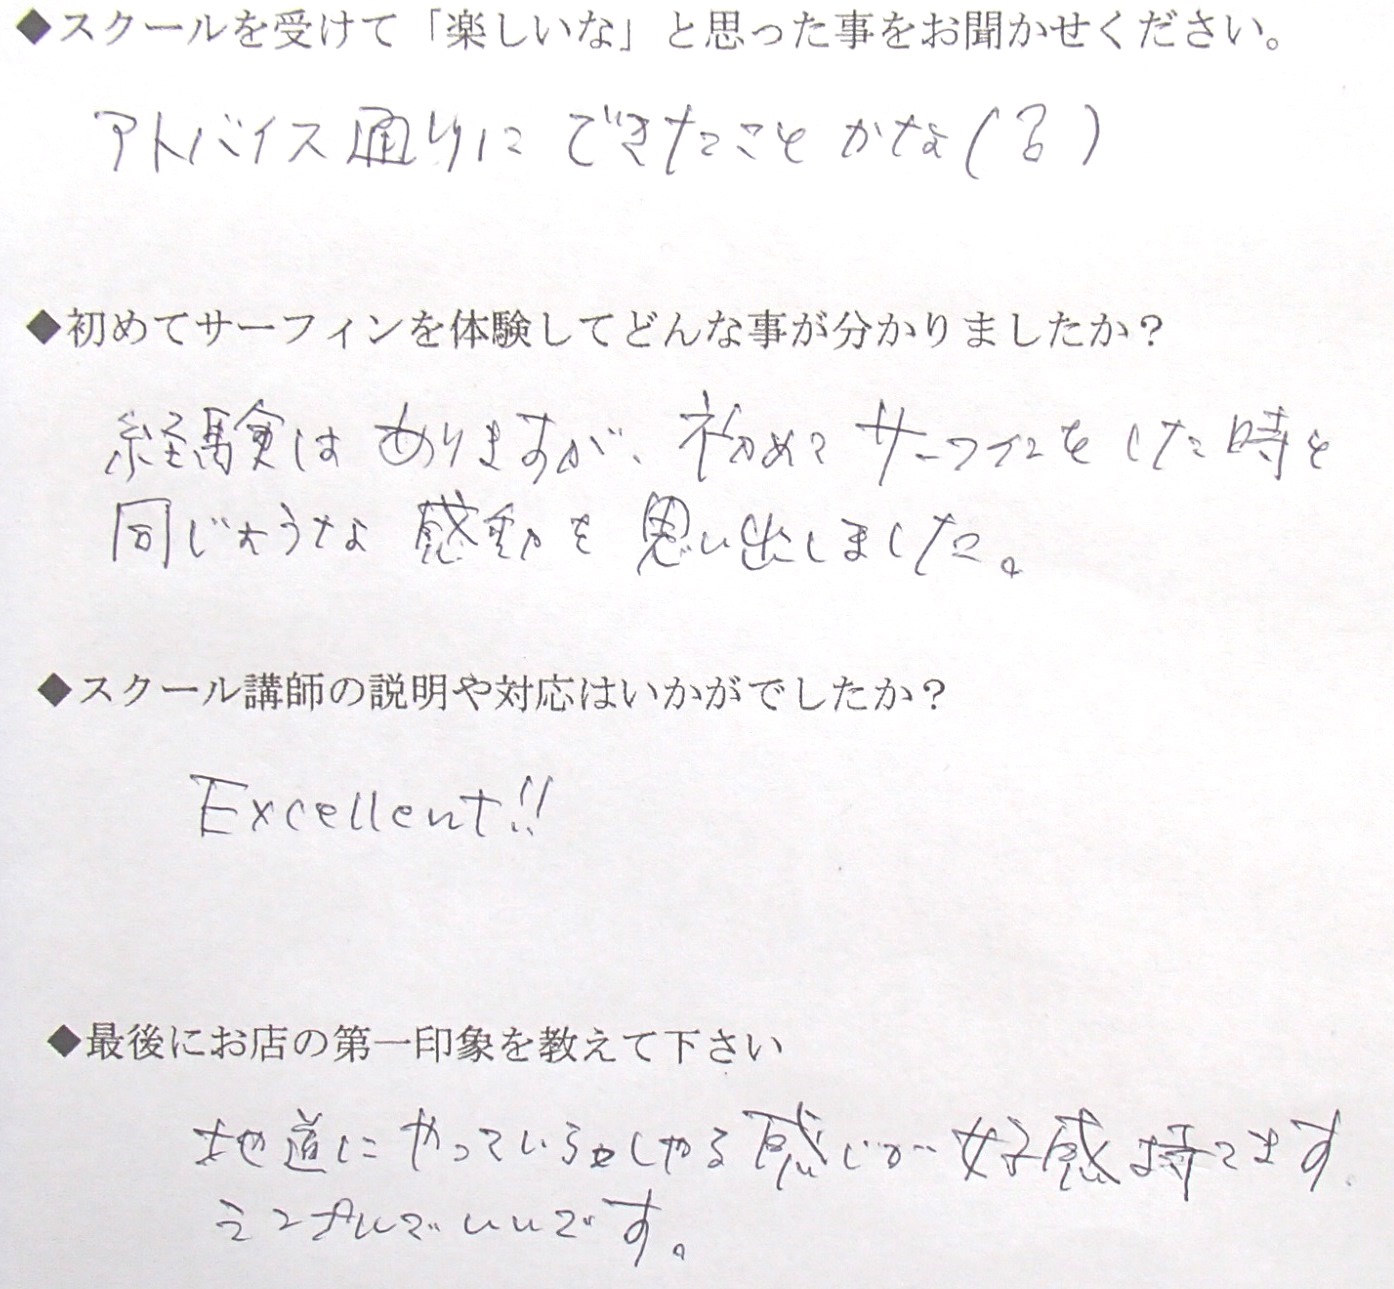 ◆スクールを受けて「楽しいな」と思った事をお聞かせください。
アドバイス通りにできたことかな(?)
◆初めてサーフィンを体験してどんな事が分かりましたか?
経験はありますが、初めてサーフィンをした時と
同じような感動を思い出しました。
◆スクール講師の説明や対応はいかがでしたか?
Excellent!!
◆最後にお店の第一印象を教えて下さい
地道にやっていらっしゃる感じが好感持てます。
シンプルでいいです。